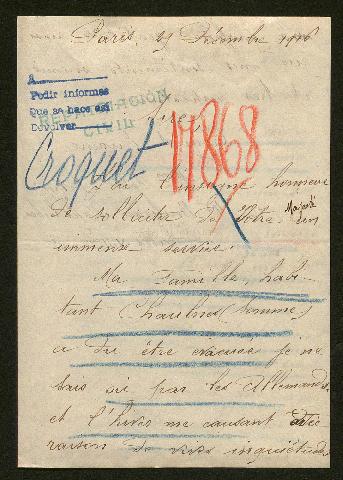 Paris, 29 Décembre 1916
A
Pedir informes
Que se hace así
Devolver
Croquet
17868
Sire,
J'ai l'insigne honneur
de solliciter de Votre Majesté un
immense service.
Ma famille, habi-
tant Chaulnes (Somme)
a dû être évacuée je ne
sais où par les Allemands
et l'hiver me causant
raison de vives inquiétudes